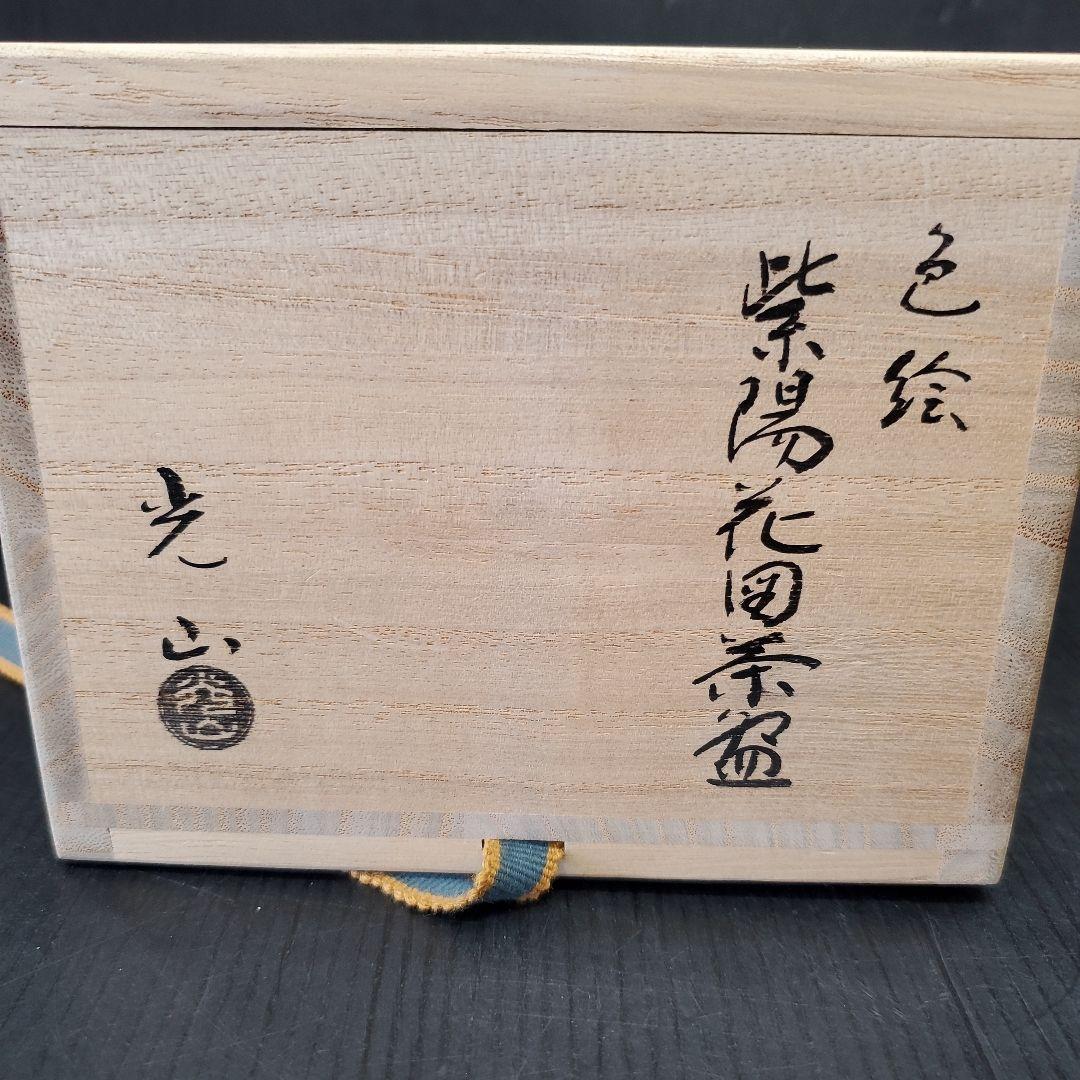 色絵
紫陽花図茶盌
光山
光山